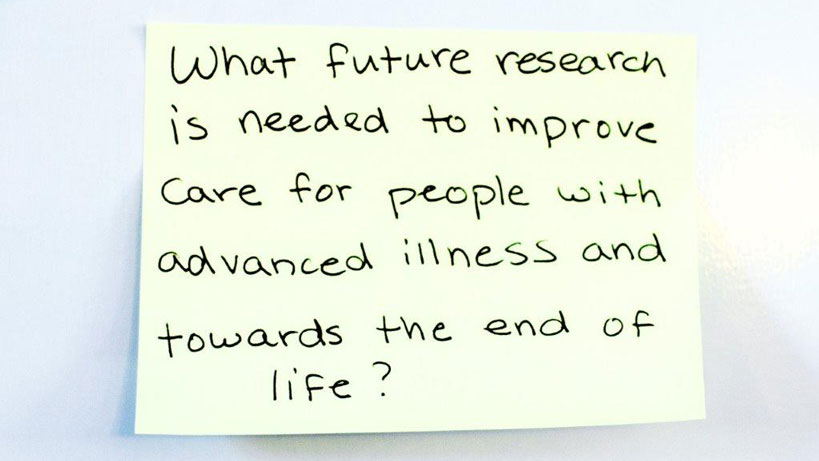 What future research
is needed to improve
care for people with
advanced illness and
towards the end of
life?